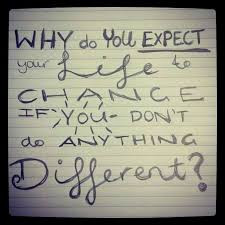 WHY do YOU EXPECT
your Life to
CHANGE
IF YOU DON'T
do ANYTHING
Different?